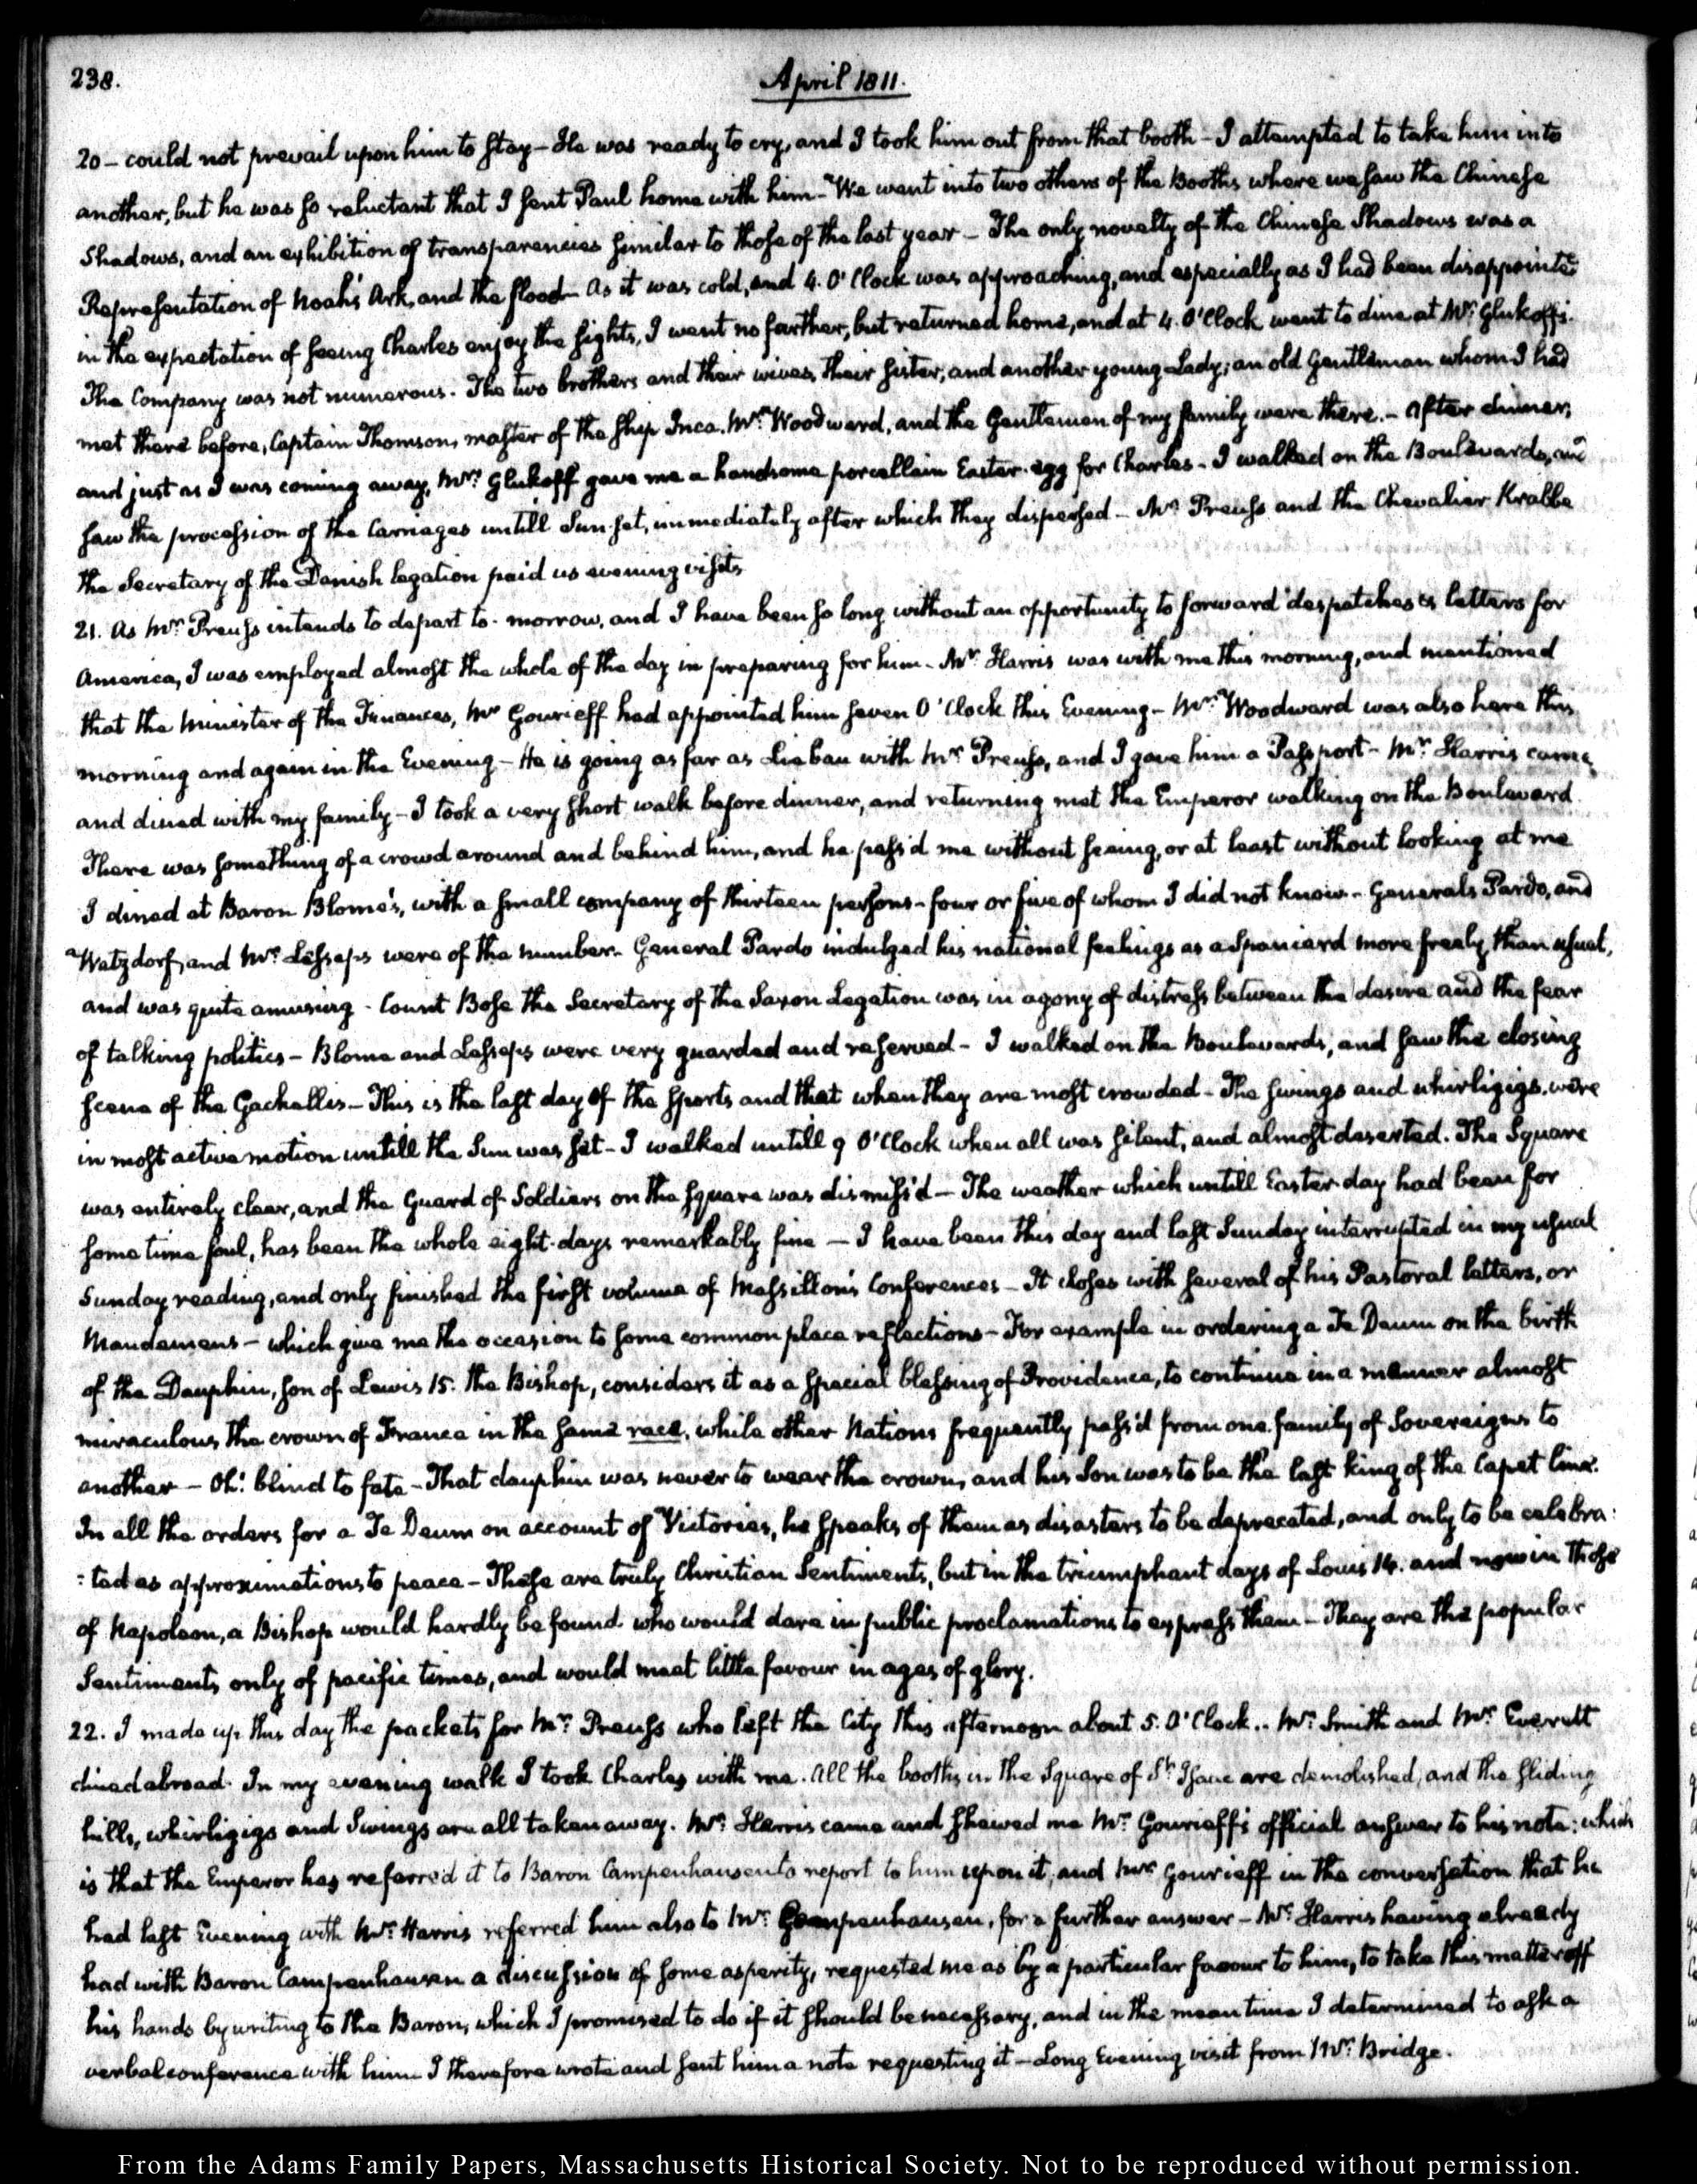 238.
April 1811.
20 – could not prevail upon him to stay – He was ready to cry, and I took him out from that booth – I attempted to take him into
another, but he was so reluctant that I sent Paul home with him – We went into two others of the Booths where we saw the Chinese
Shadows, and an exhibition of transparencies similar to those of the last year – The only novelty of the Chinese Shadows was a
Representation of Noah's Ark, and the flood – As it was cold, and 4. O'Clock was approaching, and especially as I had been disappointed
in the expectation of seeing Charles enjoy the sights, I went no farther, but returned home, and at 4. O'Clock went to dine at Mr. Glukoff's.
The Company was not numerous. The two brothers and their wives, their sister, and another young Lady; an old Gentleman whom I had
met there before, Captain Thomson, master of the ship Inca. Mr. Woodward, and the Gentlemen of my family were there. – After dinner,
and just as I was coming away, Mrs. Glukoff gave me a handsome porcellain Easter-egg for Charles – I walked on the Boulevards, and
saw the procession of the Carriages untill Sun-set, immediately after which they dispersed – Mr. Preuss and the Chevalier Krabbe
the Secretary of the Danish legation paid us evening visits
21. As Mr. Preuss intends to depart to-morrow, and I have been so long without an opportunity to forward despatches or letters for
America, I was employed almost the whole of the day in preparing for him – Mr. Harris was with me this morning, and mentioned
that the Minister of the Finances, Mr. Gourieff had appointed him seven O'Clock this Evening – Mr. Woodward was also here this
morning and again in the Evening – He is going as far as Liebau with Mr. Preuss, and I gave him a Passport – Mr. Harris came
and dined with my family – I took a very short walk before dinner, and returning met the Emperor walking on the Boulevard.
There was something of a crowd around and behind him, and he pass'd me without seeing, or at least without looking at me
I dined at Baron Blome's, with a small company of thirteen persons – four or five of whom I did not know – Generals Pardo, and
Watzdorf, and Mr. Lesseps were of the number – General Pardo indulged his national feelings as a Spaniard more freely than usual,
and was quite amusing – Count Bose the Secretary of the Saxon Legation was in agony of distress between the desire and the fear
of talking politics – Blome and Lesseps were very guarded and reserved – I walked on the Boulevards, and saw the closing
scene of the Gachellis – This is the last day of the sports and that when they are most crowded – The swings and whirligigs were
in most active motion untill the Sun was set – I walked untill 9 O'Clock when all was silent, and almost deserted. The Square
was entirely clear, and the Guard of Soldiers on the square was dismiss'd – The weather which untill Easter-day had been for
some time foul, has been the whole eight-days remarkably fine – I have been this day and last Sunday interrupted in my usual
Sunday reading, and only finished the first volume of Massillon's Conferences – It closes with several of his Pastoral letters, or
Mandemens – which give me the occasion to some common place reflections – For example in ordering a Te Deum on the birth
of the Dauphin, son of Lewis 15. the Bishop, considers it as a special blessing of Providence, to continue in a manner almost
miraculous the crown of France in the same race, while other Nations frequently pass'd from one family of Sovereigns to
another – Oh! blind to fate – That dauphin was never to wear the crown, and his Son was to be the last king of the Capet line.
In all the orders for a Te Deum on account of Victories, he speaks of them as disasters to be deprecated, and only to be celebra:
:ted as approximations to peace – These are truly Christian Sentiments, but in the triumphant days of Louis 14. and now in those
of Napoleon, a Bishop would hardly be found who would dare in public proclamations to express them – They are the popular
Sentiments only of pacific times, and would meet little favour in ages of glory.
22. I made up this day the packets for Mr. Preuss who left the City this afternoon about 5. O'Clock.. Mr. Smith and Mr. Everett
dined abroad. In my evening walk I took Charles with me. All the booths in the Square of St. Isaac are demolished, and the sliding
hills, whirligigs and Swings are all taken away. Mr. Harris came and shewed me Mr. Gourieff's official answer to his note: which
is that the Emperor has referred it to Baron Campenhausen to report to him upon it, and Mr. Gourieff in the conversation that he
had last Evening with Mr. Harris referred him also to Mr. Campenhausen, for a further answer – Mr. Harris having already
had with Baron Campenhausen a discussion of some asperity, requested me as by a particular favour to him, to take this matter off
his hands by writing to the Baron, which I promised to do if it should be necessary, and in the mean time I determined to ask a
verbal conference with him I therefore wrote and sent him a note requesting it – Long Evening visit from Mr. Bridge.
From the Adams Family Papers, Massachusetts Historical Society. Not to be reproduced without permission.